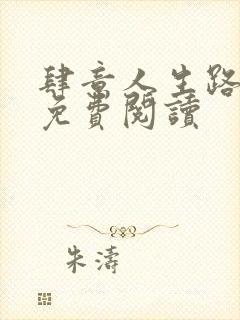 肆意人生路
免費閱讀
朱濤